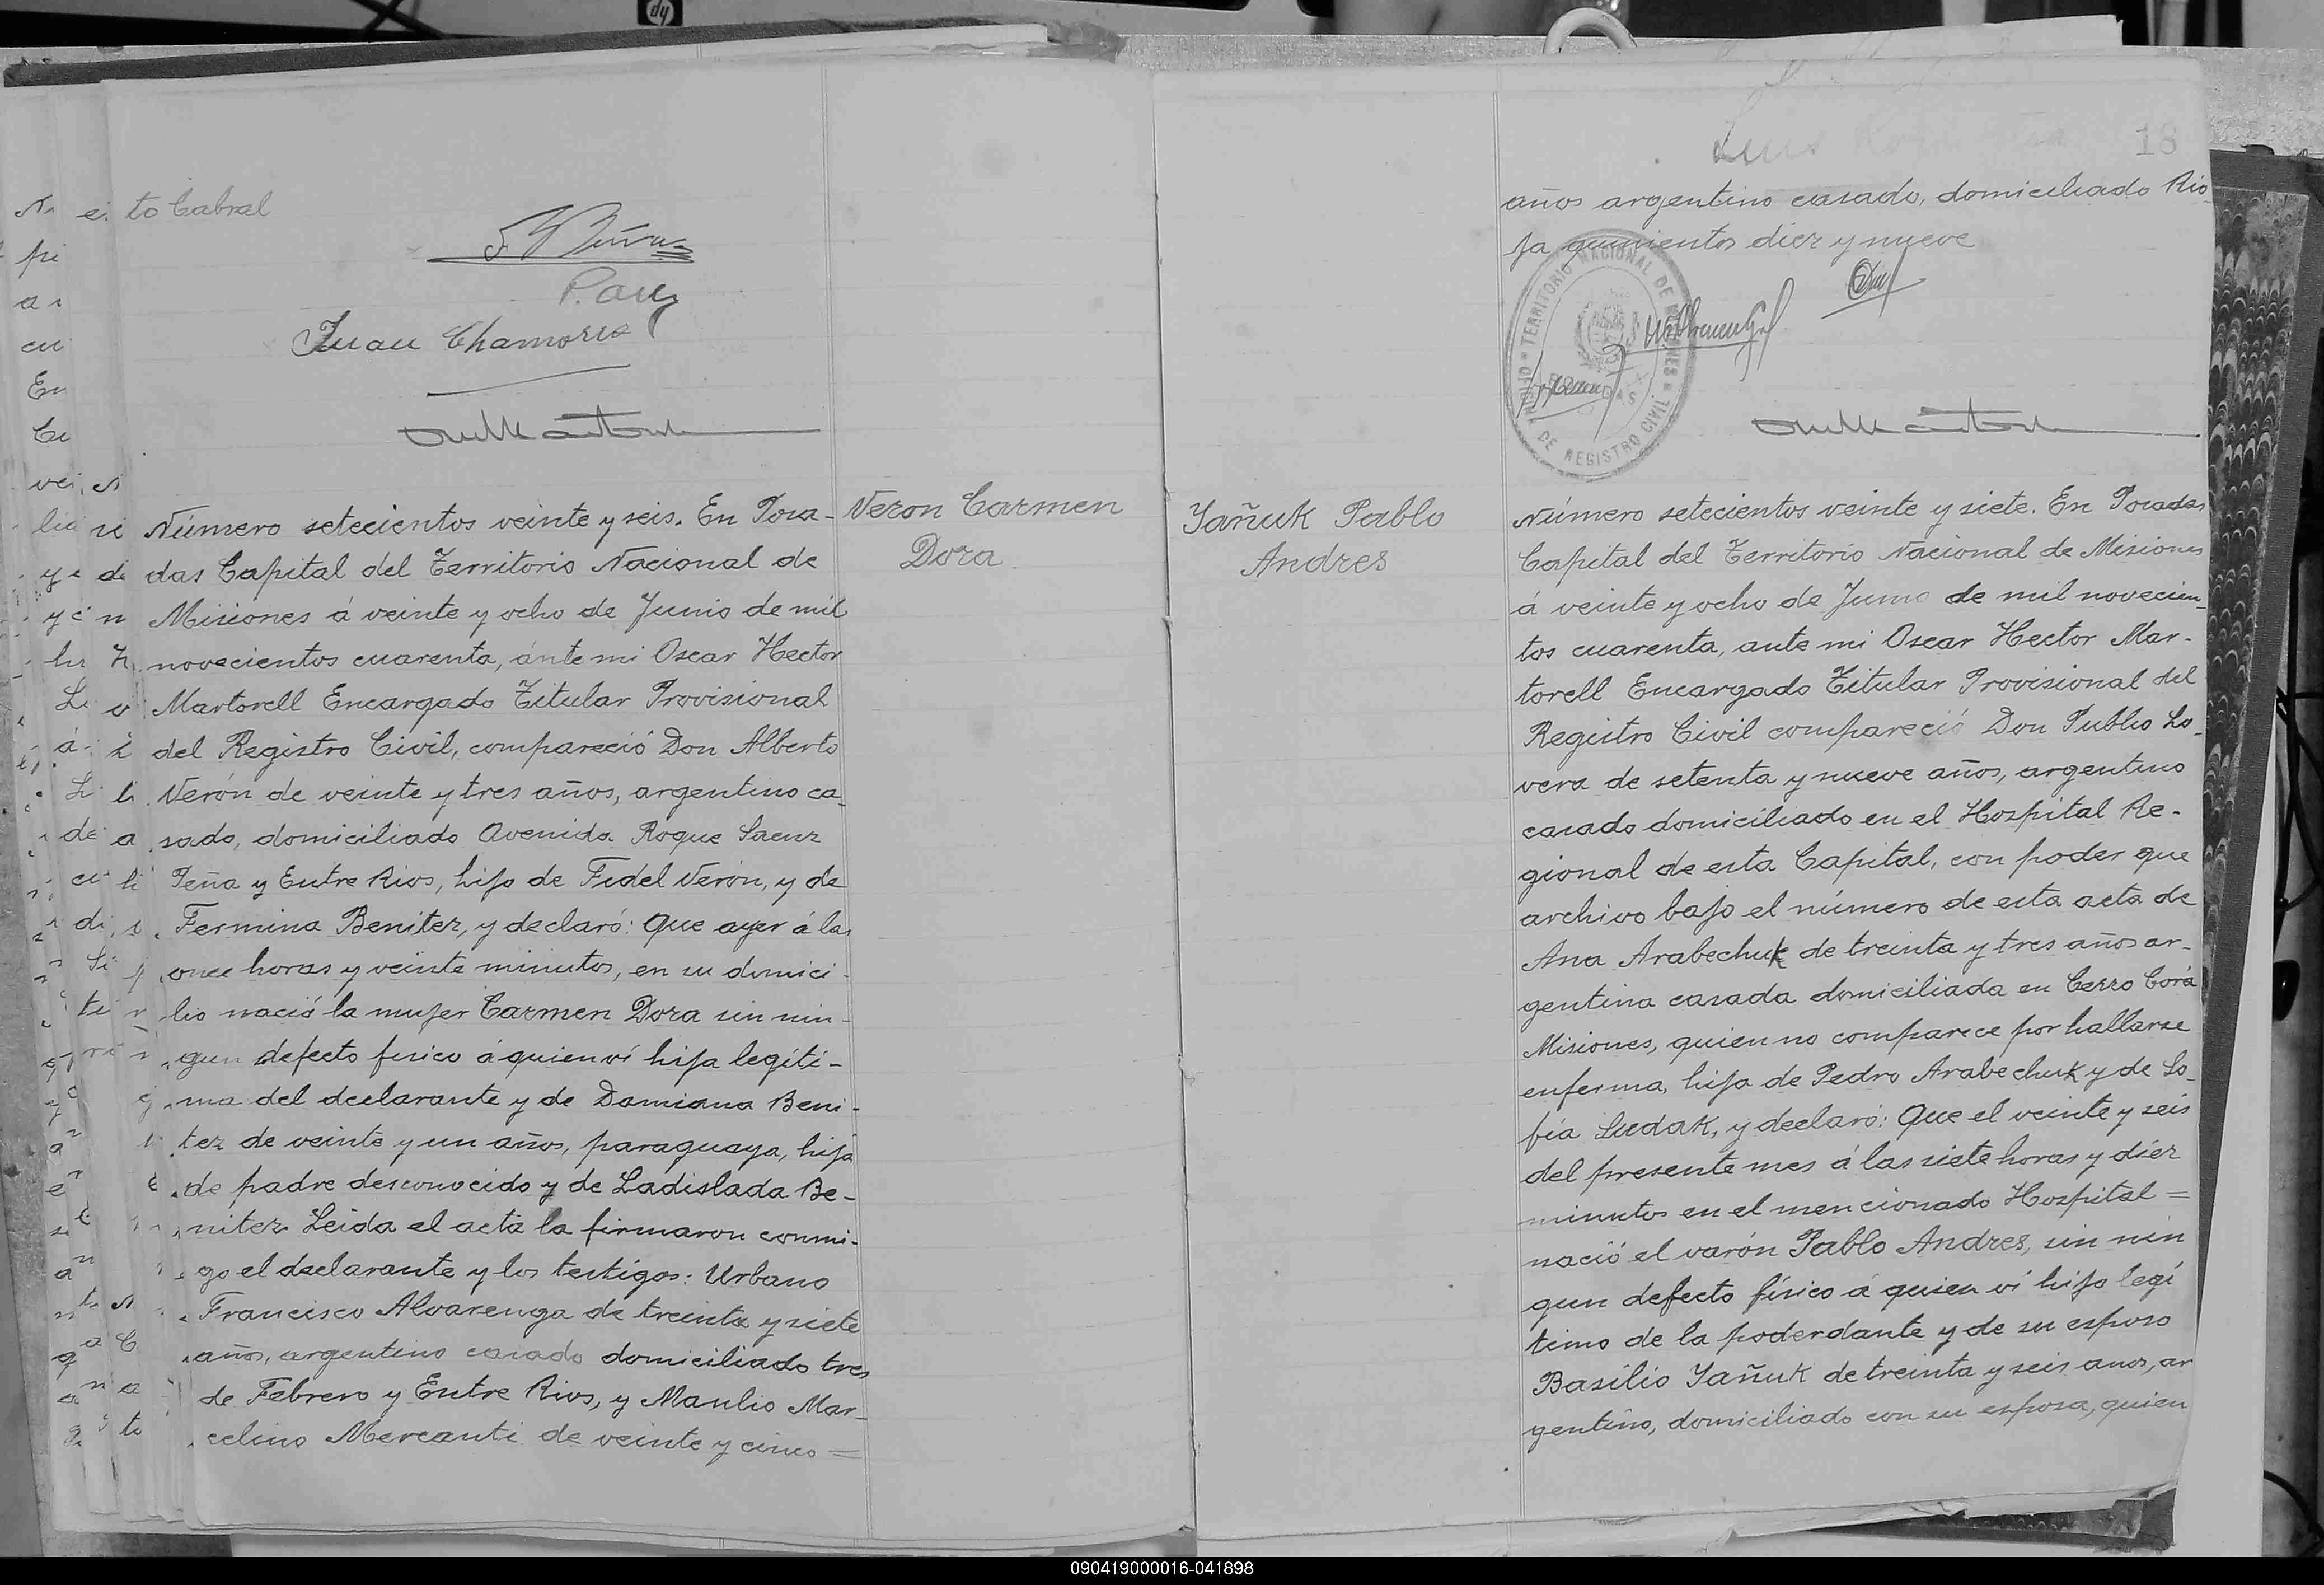 to Cabral
Juan Chamorro
Número setecientos veinte y seis. En Posa-
das Capital del Territorio Nacional de
Misiones á veinte y ocho de Junio de mil
novecientos cuarenta, ánte mi Oscar Hector
Martorell Encargado Titular Provisional
del Registro Civil, compareció Don Alberto
Verón de veinte y tres años, argentino ca-
sado, domiciliado Avenida Roque Saenz
Peña y Entre Rios, hijo de Fidel Verón, y de
Fermina Benitez, y declaró: Que ayer á las
once horas y veinte minutos, en su domici-
lio nació la mujer Carmen Dora sin nin-
gun defecto fisico á quien ví hija legíti-
ma del declarante y de Damiana Beni-
tez de veinte y un años, paraguaya, hija
de padre desconocido y de Ladislada Be-
nitez. Leida el acta la firmaron conmi-
go el declarante y los testigos: Urbano
Francisco Alvarenga de treinta y siete
años, argentino casado domiciliado tres
de Febrero y Entre Rios, y Manlio Mar-
celino Mercanti de veinte y cinco =
Veron Carmen
Dora
18
años argentino casado, domiciliado Rio-
ja quinientos diez y nueve
TERRITORIO NACIONAL DE MISIONES
OFICINA DE REGISTRO CIVIL
POSADAS
Yañuk Pablo
Andres
Número setecientos veinte y siete. En Posadas
Capital del Territorio Nacional de Misiones
á veinte y ocho de Junio de mil novecien-
tos cuarenta, ante mi Oscar Hector Mar-
torell Encargado Titular Provisional del
Registro Civil compareció Don Publio Lo-
vera de setenta y nueve años, argentino
casado domiciliado en el Hospital Re-
gional de esta Capital, con poder que
archivo bajo el número de esta acta de
Ana Arabechuk de treinta y tres años ar-
gentina casada domiciliada en Cerro Corá
Misiones, quien no comparece por hallarse
enferma, hija de Pedro Arabechuk y de So-
fía Ludak, y declaró: Que el veinte y seis
del presente mes á las siete horas y diez
minutos en el mencionado Hospital =
nació el varón Pablo Andres, sin nin
gun defecto físico á quien ví hijo legí
timo de la poderdante y de su esposo
Basilio Yañuk de treinta y seis anos, ar
gentino, domiciliado con su esposa, quien
090419000016-041898